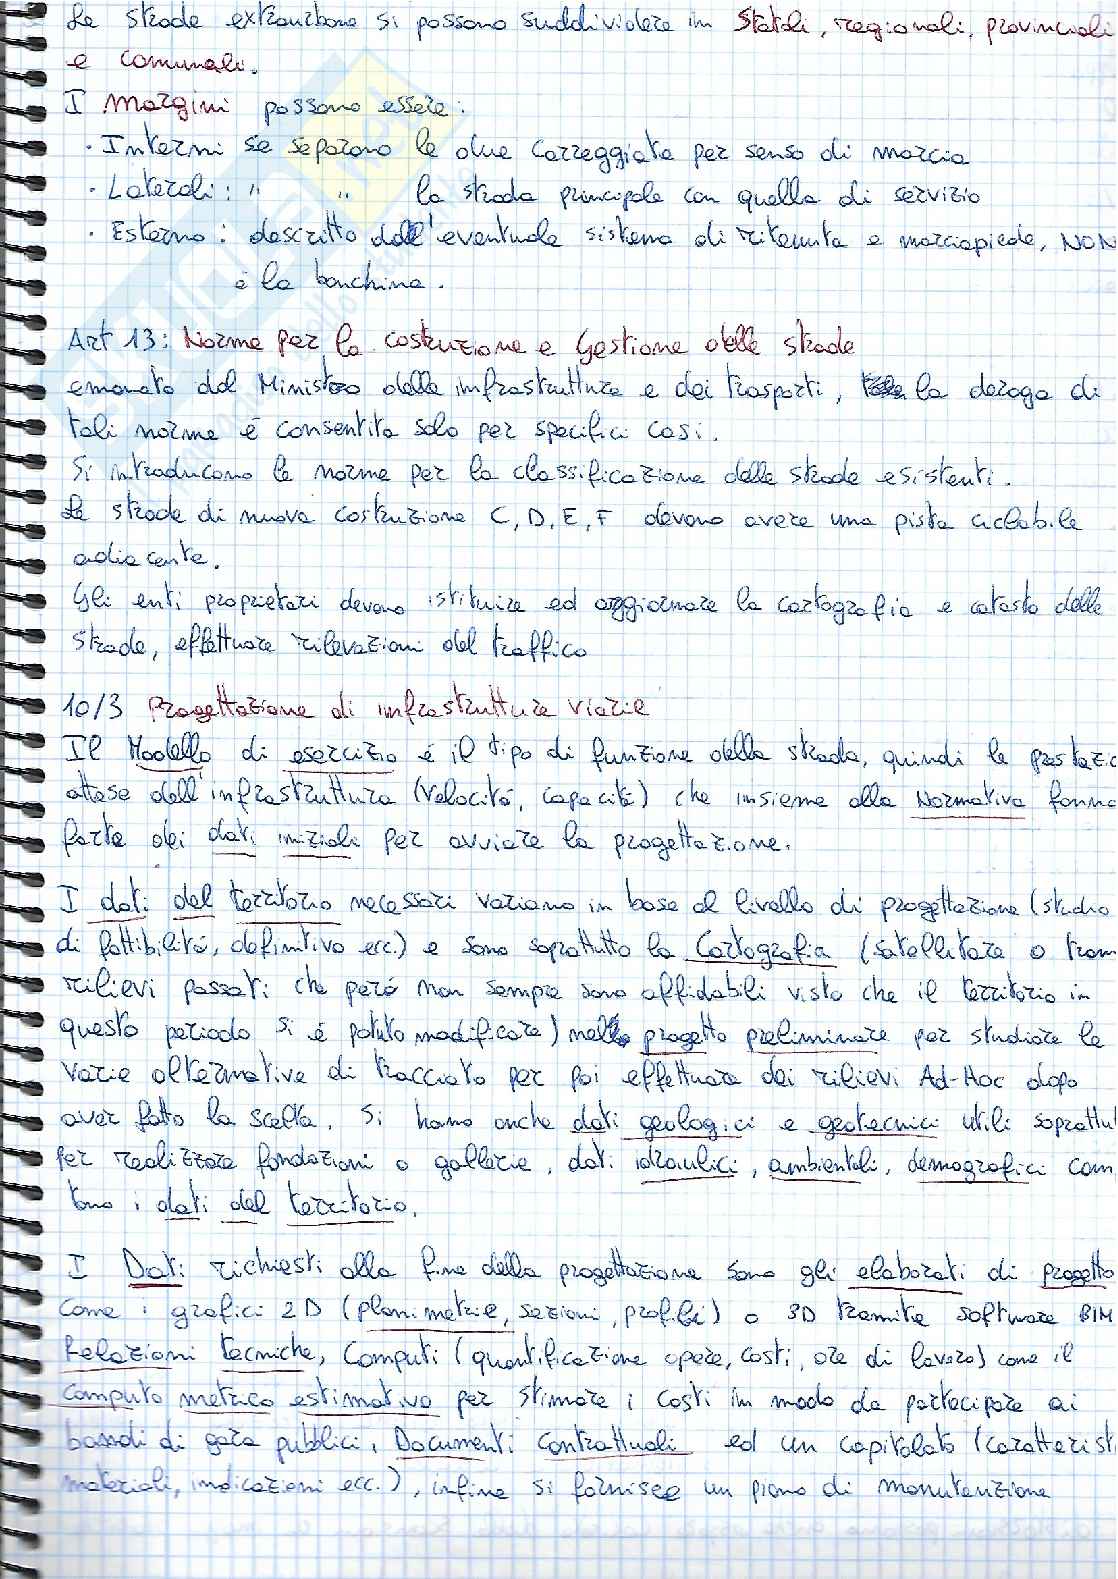 Le strade extraurbane si possono suddividere in Statali, regionali, provinciali
e comunali.
I margini possono essere:
· Interni se separano le due carreggiate per senso di marcia
· Laterali: " " la strada principale con quella di servizio
· Esterno: descritto dall'eventuale sistema di ritenuta e marciapiede, NON
è la banchina.
Art 13: Norme per la costruzione e Gestione delle strade
emanato dal Ministero delle infrastrutture e dei trasporti, la deroga di
tali norme è consentita solo per specifici casi.
Si introducono le norme per la classificazione delle strade esistenti.
Le strade di nuova costruzione C, D, E, F devono avere una pista ciclabile
adiacente.
Gli enti proprietari devono istituire ed aggiornare la cartografia e catasto delle
strade, effettuare rilevazioni del traffico
10/3 Progettazione di infrastrutture viarie
Il Modello di esercizio è il tipo di funzione della strada, quindi le prestazio
attese dell'infrastruttura (velocità, capacità) che insieme alla Normativa fanno
parte dei dati iniziali per avviare la progettazione.
I dati del territorio necessari variano in base al livello di progettazione (studio
di fattibilità, definitivo ecc.) e sono soprattutto la Cartografia (satellitare o tram
rilievi passati che però non sempre sono affidabili visto che il territorio in
questo periodo si è potuto modificare) nel progetto preliminare per studiare le
varie alternative di tracciato per poi effettuare dei rilievi Ad-Hoc dopo
aver fatto la scelta. Si hanno anche dati geologici e geotecnici utili soprattut
per realizzare fondazioni o gallerie, dati idraulici, ambientali, demografici com
tano i dati del territorio.
I Dati richiesti alla fine della progettazione sono gli elaborati di progetto
come i grafici 2D (planimetrie, sezioni, profili) o 3D tramite software BIM
Relazioni tecniche, Computi (quantificazione opere, costi, ore di lavoro) come il
computo metrico estimativo per stimare i costi in modo da partecipare ai
bandi di gara pubblici, Documenti contrattuali ed un capitolato (caratterist
materiali, indicazioni ecc.), infine si fornisce un piano di manutenzione